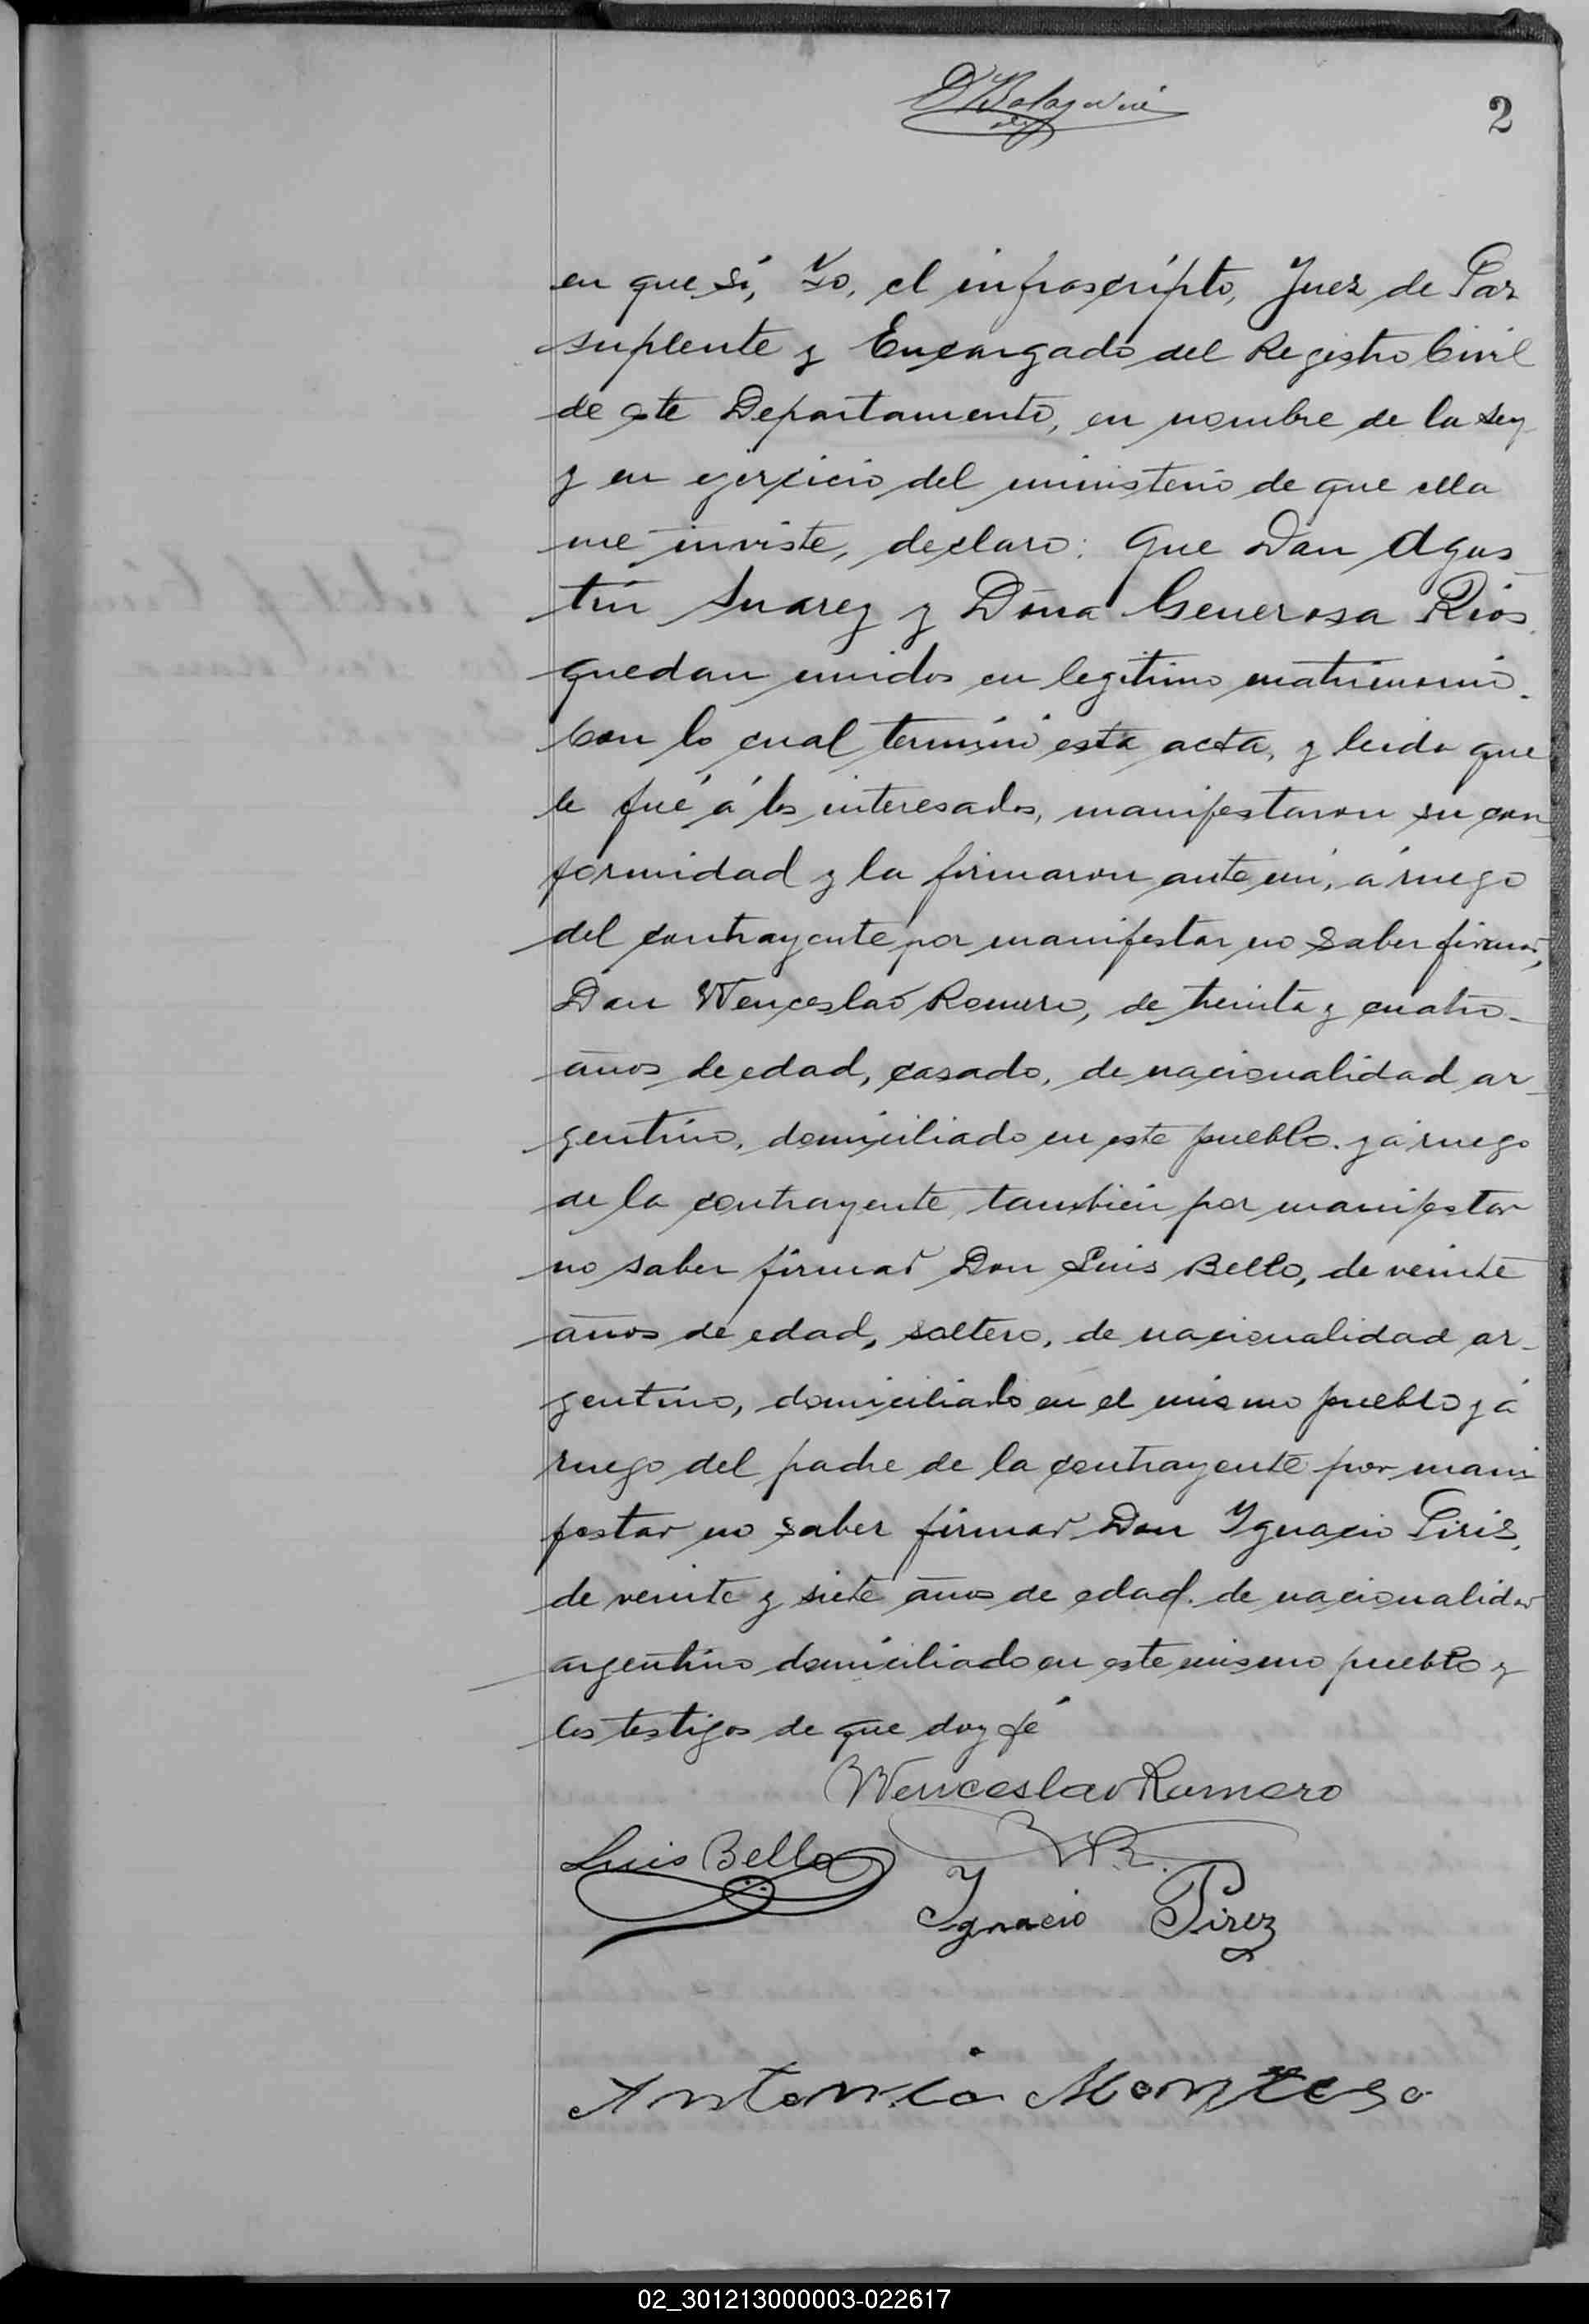 2
en que sí, Yo, el infrascripto, Juez de Paz
suplente y Encargado del Registro Civil
de este Departamento, en nombre de la Ley
y en ejercicio del ministerio de que ella
me inviste, declaro: Que Don Agus
tin Suarez y Doña Generosa Rios
quedan unidos en legitimo matrimonio.
Con lo cual terminó esta acta, y leida que
le fué á los interesados, manifestaron su con
formidad y la firmaron ante mi, á ruego
del contrayente por manifestar no saber firmar,
Don Wenceslao Romero, de treinta y cuatro
años de edad, casado, de nacionalidad ar
gentino, domiciliado en este pueblo. y á ruego
de la contrayente, tambien por manifestar
no saber firmar Don Luis Bello, de veinte
años de edad, soltero, de nacionalidad ar-
gentino, domiciliado en el mismo pueblo y á
ruego del padre de la contrayente por mani
festar no saber firmar Don Ygnacio Piris,
de veinte y siete años de edad. de nacionalidad
argentino domiciliado en este mismo pueblo y
los testigos de que doy fé
Wenceslao Romero
WR.
Luis Bello
Ygnacio Pirez
Antonio Montero
02_301213000003-022617